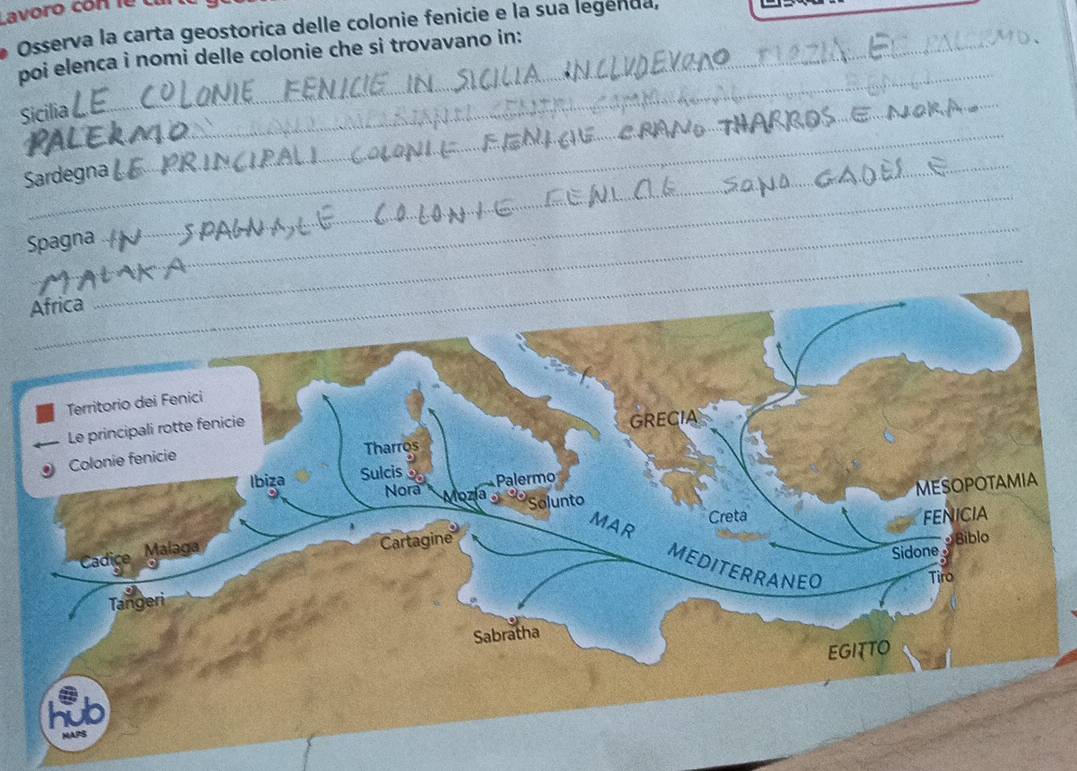 Lavoro con le
Osserva la carta geostorica delle colonie fenicie e la sua legenda,
poi elenca i nomi delle colonie che si trovavano in:
Sicilia LE COLONIE FENICIE IN SICILIA INCLUDEVANO MOZIA E PALERMO.
PALERMO
Sardegna LE PRINCIPALI COLONIE FENICIE ERANO THARROS E NORA.
Spagna IN SPAGNA, LE COLONIE FENICIE SONO GADES E
MALAKA
Africa
Territorio dei Fenici
Le principali rotte fenicie
Colonie fenicie
GRECIA
Tharros
Ibiza
Sulcis
Nora
Mozia
Palermo
Solunto
MESOPOTAMIA
Creta
FENICIA
MAR MEDITERRANEO
Biblo
Sidone
Tiro
Cadice
Malaga
Cartagine
Tangeri
Sabratha
EGITTO
hub
MAPS